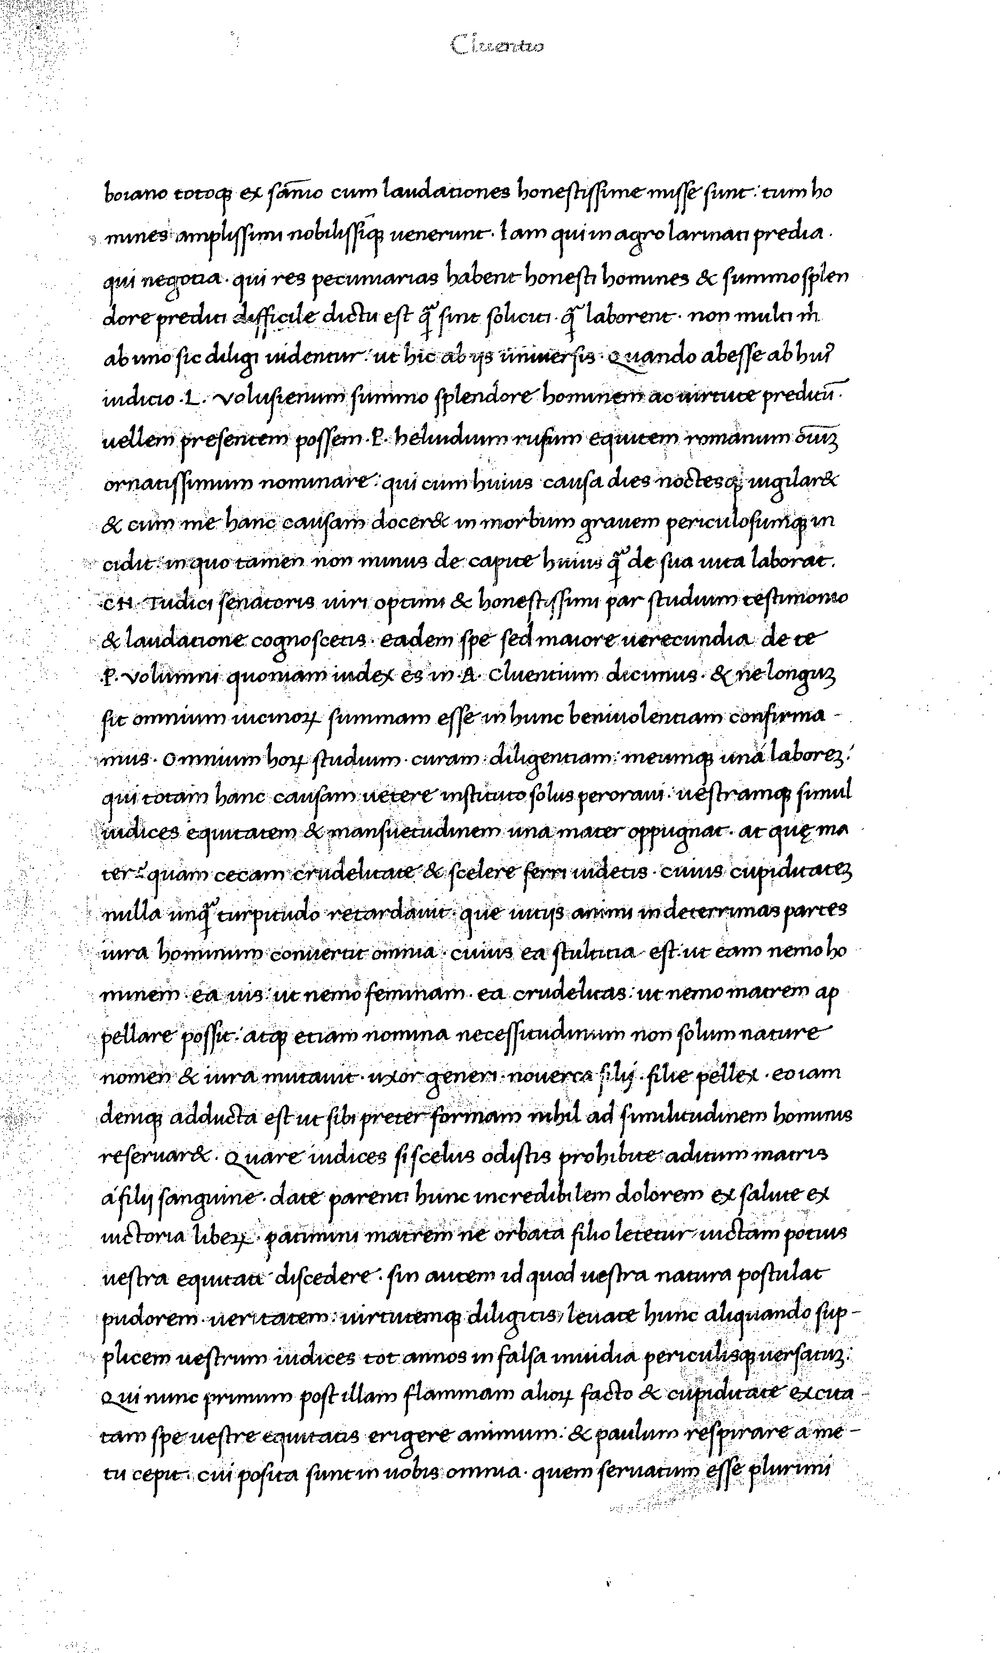 Cluentio
boiano totoqꝫ ex sānio cum laudationes honestissime misse sunt: tum ho
mines amplissimi nobilissīqꝫ uenerunt. Iam qui in agro larinati predia.
qui negotia. qui res pecuniarias habent honesti homines & summo splen
dore prediti difficile dictu est q̄ sint soliciti. q̄ laborent. non multi m̄
ab uno sic diligi uidentur: ut hic ab ijs uniuersis. Quando abesse ab huiꝰ
iudicio. L. Volusienum summo splendore hominem ac uirtute preditū.
uellem presentem possem. P. heluidium rufum equitem romanum oīuiꝫ
ornatissimum nominare: qui cum huius causa dies noctesqꝫ uigilar&
& cum me hanc causam docer& in morbum grauem periculosumqꝫ in
cidit: in quo tamen non minus de capite huius q̄ de sua uita laborat.
CN. Tudici senatoris uiri optimi & honestissimi par studium testimonio
& laudatione cognoscetis. eadem spe sed maiore uerecundia de te
.P. Volumni quoniam iudex es in .A. Cluentium dicimus. & ne longiꝫ
sit omnium uicinoꝝ summam esse in hunc beniuolentiam confirma-
mus. Omnium hoꝝ studium. curam. diligentiam: meumqꝫ unà laboreꝫ:
qui totam hanc causam uetere instituto solus peroraui: uestramqꝫ simul
iudices equitatem & mansuetudinem una mater oppugnat. at quę ma
ter: quam cecam crudelitate & scelere ferri uidetis. cuius cupiditateꝫ
nulla unq̄ turpitudo retardauit. que uitijs animi in deterrimas partes
iura hominum conuertit omnia. cuius ea stultitia est: ut eam nemo ho
minem. ea uis: ut nemo feminam. ea crudelitas: ut nemo matrem ap
pellare possit: atqꝫ etiam nomina necessitudinum non solum nature
nomen & iura mutauit. uxor generi. nouerca filij. filie pellex. eo iam
deniqꝫ adducta est ut sibi preter formam nihil ad similitudinem hominis
reseruar&. Quare iudices si scelus odistis prohibite aditum matris
á filij sanguine. date parenti hunc incredibilem dolorem ex salute ex
uictoria libeꝝ. patimini matrem ne orbata filio letetur uictam potius
uestra equitati discedere. sin autem id quod uestra natura postulat
pudorem. ueritatem: uirtutemqꝫ diligitis, leuate hunc aliquando sup-
plicem uestrum iudices tot annos in falsa inuidia periculisqꝫ uersatuꝫ:
Qui nunc primum post illam flammam alioꝝ facto & cupiditate excita-
tam spe uestre equitatis erigere animum: & paulum respirare a me-
tu cepit. cui posita sunt in uobis omnia. quem seruatum esse plurimi